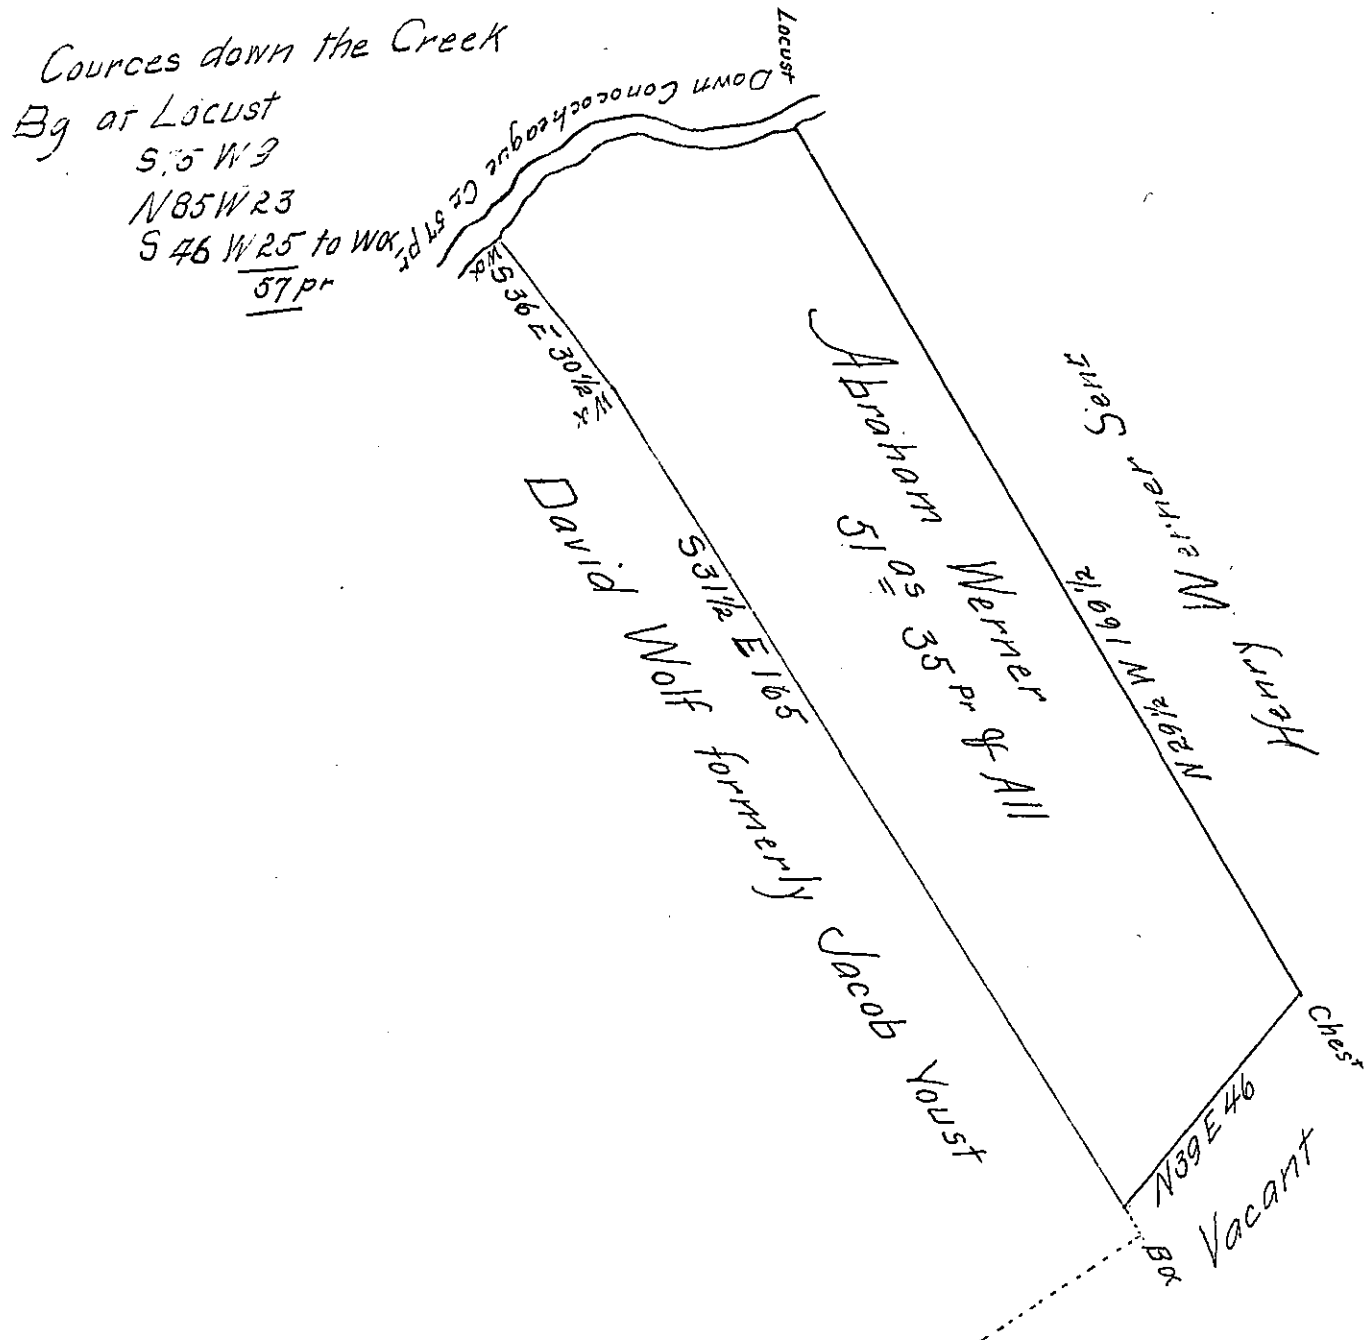 Cources down the Creek
Bg at Locust
S 75 W 9
N 85 W 23
S 46 W 25 to WO
57 pr
Locust
Down Conococheague Cr 57 pr
WO
S 36 E 30 1/2
S 31 1/2 E 165
David Wolf formerly Jacob Youst
Abraham Werner
51 as 35 pr & All
Henry Werner Senr
N 29 1/2 W 169 1/2
Chest
N 39 E 46
Vacant
BO